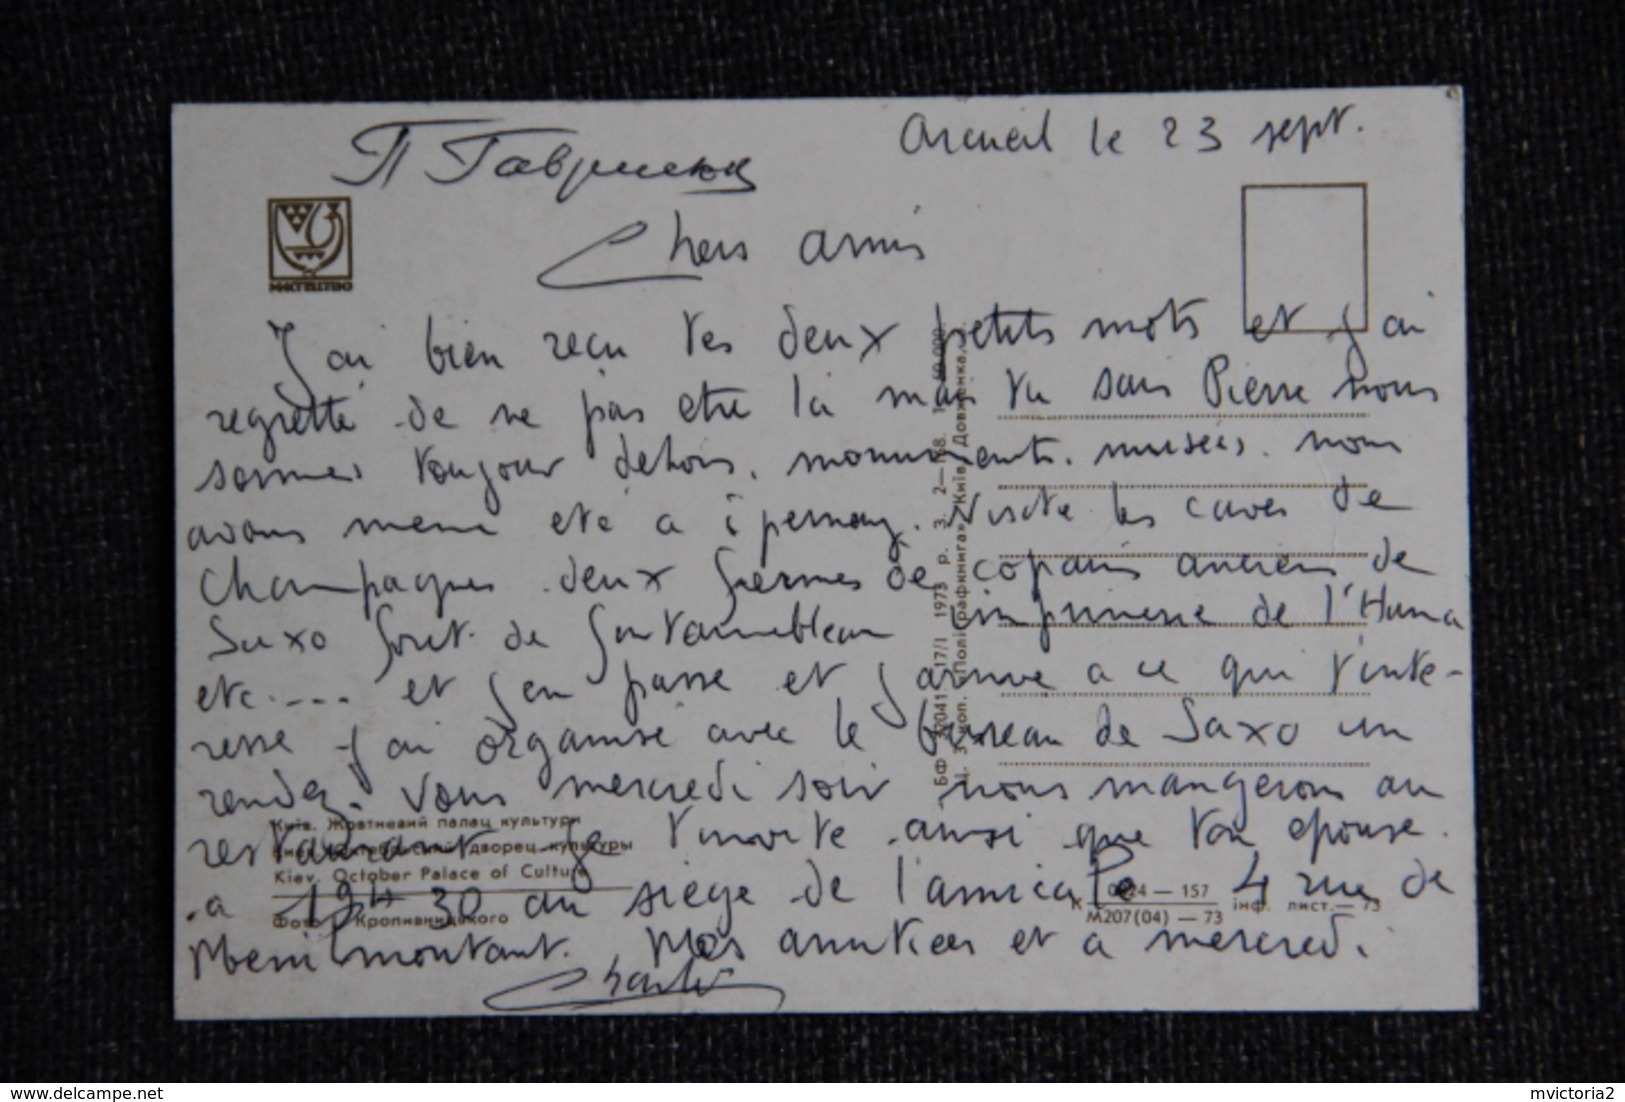 Arcueil le 23 sept.
П Гаврилюк
МИСТЕЦТВО
Chers amis
J ai bien recu tes deux petits mots et j ai
regretté de ne pas etre là mais tu sais Pierre nous
sommes toujour dehors. monuments. musées. nous
avons meme ete a épernay. Visité les caves de
Champagnes deux fermes de copains anciens de
Saxo foret de Fontainebleau imprimerie de l'Huma
etc.... et j en passe et j arrive a ce qui t'inte-
resse j ai organisé avec le bureau de Saxo un
rendez. Vous mercredi soir nous mangerons au
restaurant je t'invite ainsi que ton epouse.
a 19H 30 au siège de l'amicale 4 rue de
Menilmontant. Mes amities et a mercredi
Charles
Київ. Жовтневий палац культури
Киев. Октябрьский дворец культуры
Kiev. October Palace of Culture
Фото Кропивницького
БФ 32041 17/I 1973 р. З. 2—168. 60 000.
Ц. 3 коп. «Поліграфкнига» Київ, Довженка, 3.
К 0824 — 157
М207(04) — 73 інф. лист. — 73
delcampe.net
mvictoria2